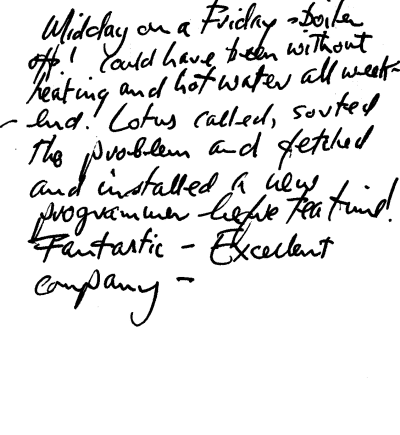 Midday on a Friday - Boiler
off! Could have been without
heating and hot water all week-
end! Lotus called, sorted
the problem and fetched
and installed a new
programmer before teatime!
Fantastic - Excellent
company -